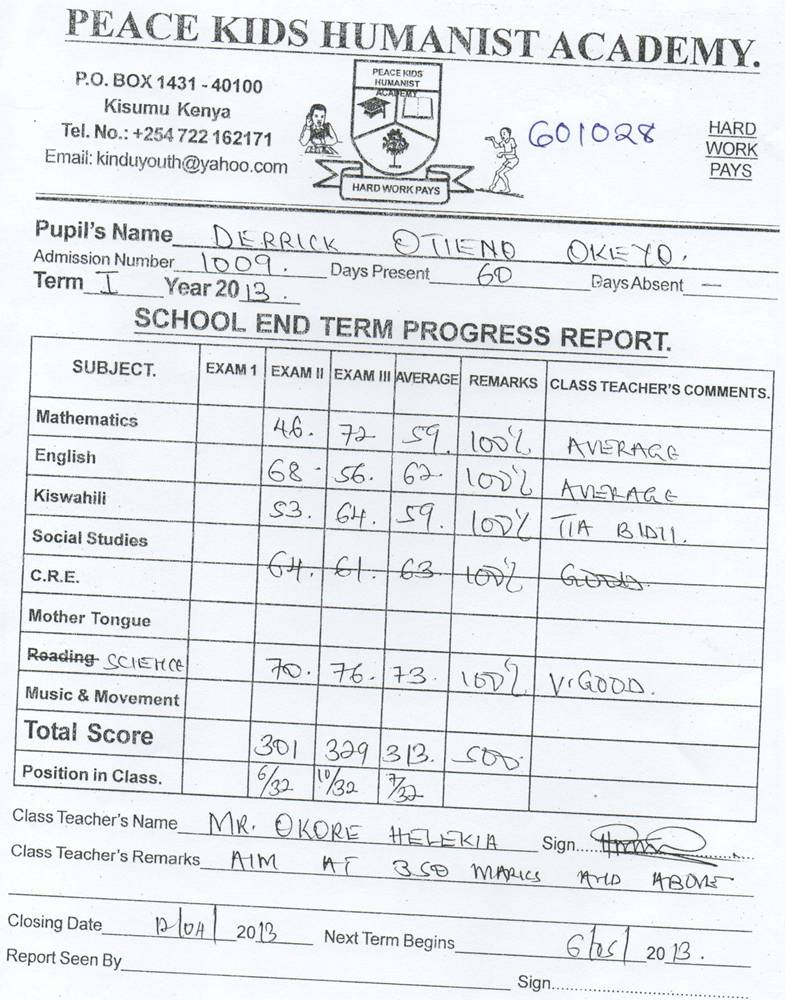 PEACE KIDS HUMANIST ACADEMY.
P.O. BOX 1431 - 40100
Kisumu Kenya
Tel. No.: +254 722 162171
Email: kinduyouth@yahoo.com
PEACE KIDS
HUMANIST
ACADEMY
HARD WORK PAYS
601028
HARD
WORK
PAYS
Pupil's Name DERRICK OTIENO OKEYO.
Admission Number 1009. Days Present 60 Days Absent —
Term I Year 2013.
SCHOOL END TERM PROGRESS REPORT.
SUBJECT. EXAM 1 EXAM II EXAM III AVERAGE REMARKS CLASS TEACHER'S COMMENTS.
Mathematics 46. 72 59. 100% AVERAGE
English 68 56. 62 100% AVERAGE
Kiswahili 53. 64. 59. 100% TIA BIDII.
Social Studies
C.R.E. 64. 61. 63 100% GOOD.
Mother Tongue
Reading SCIENCE 70. 76. 73. 100% V.GOOD.
Music & Movement
Total Score 301 329 313. 500.
Position in Class. 6/32 10/32 7/32
Class Teacher's Name MR. OKORE HELEKIA Sign.....
Class Teacher's Remarks AIM AT 350 MARKS AND ABOVE
Closing Date 12/04/2013 Next Term Begins 6/05/2013.
Report Seen By
Sign.....